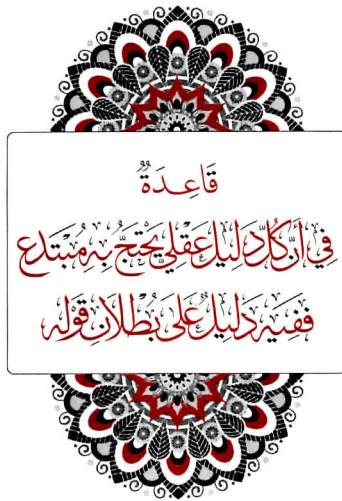 قَاعِدَةٌ
فِي أَنَّ كُلَّ دَلِيلٍ عَقْلِيٍّ يَحْتَجُّ بِهِ مُبْتَدِعٌ
فَفِيهِ دَلِيلٌ عَلَى بُطْلَانِ قَوْلِهِ